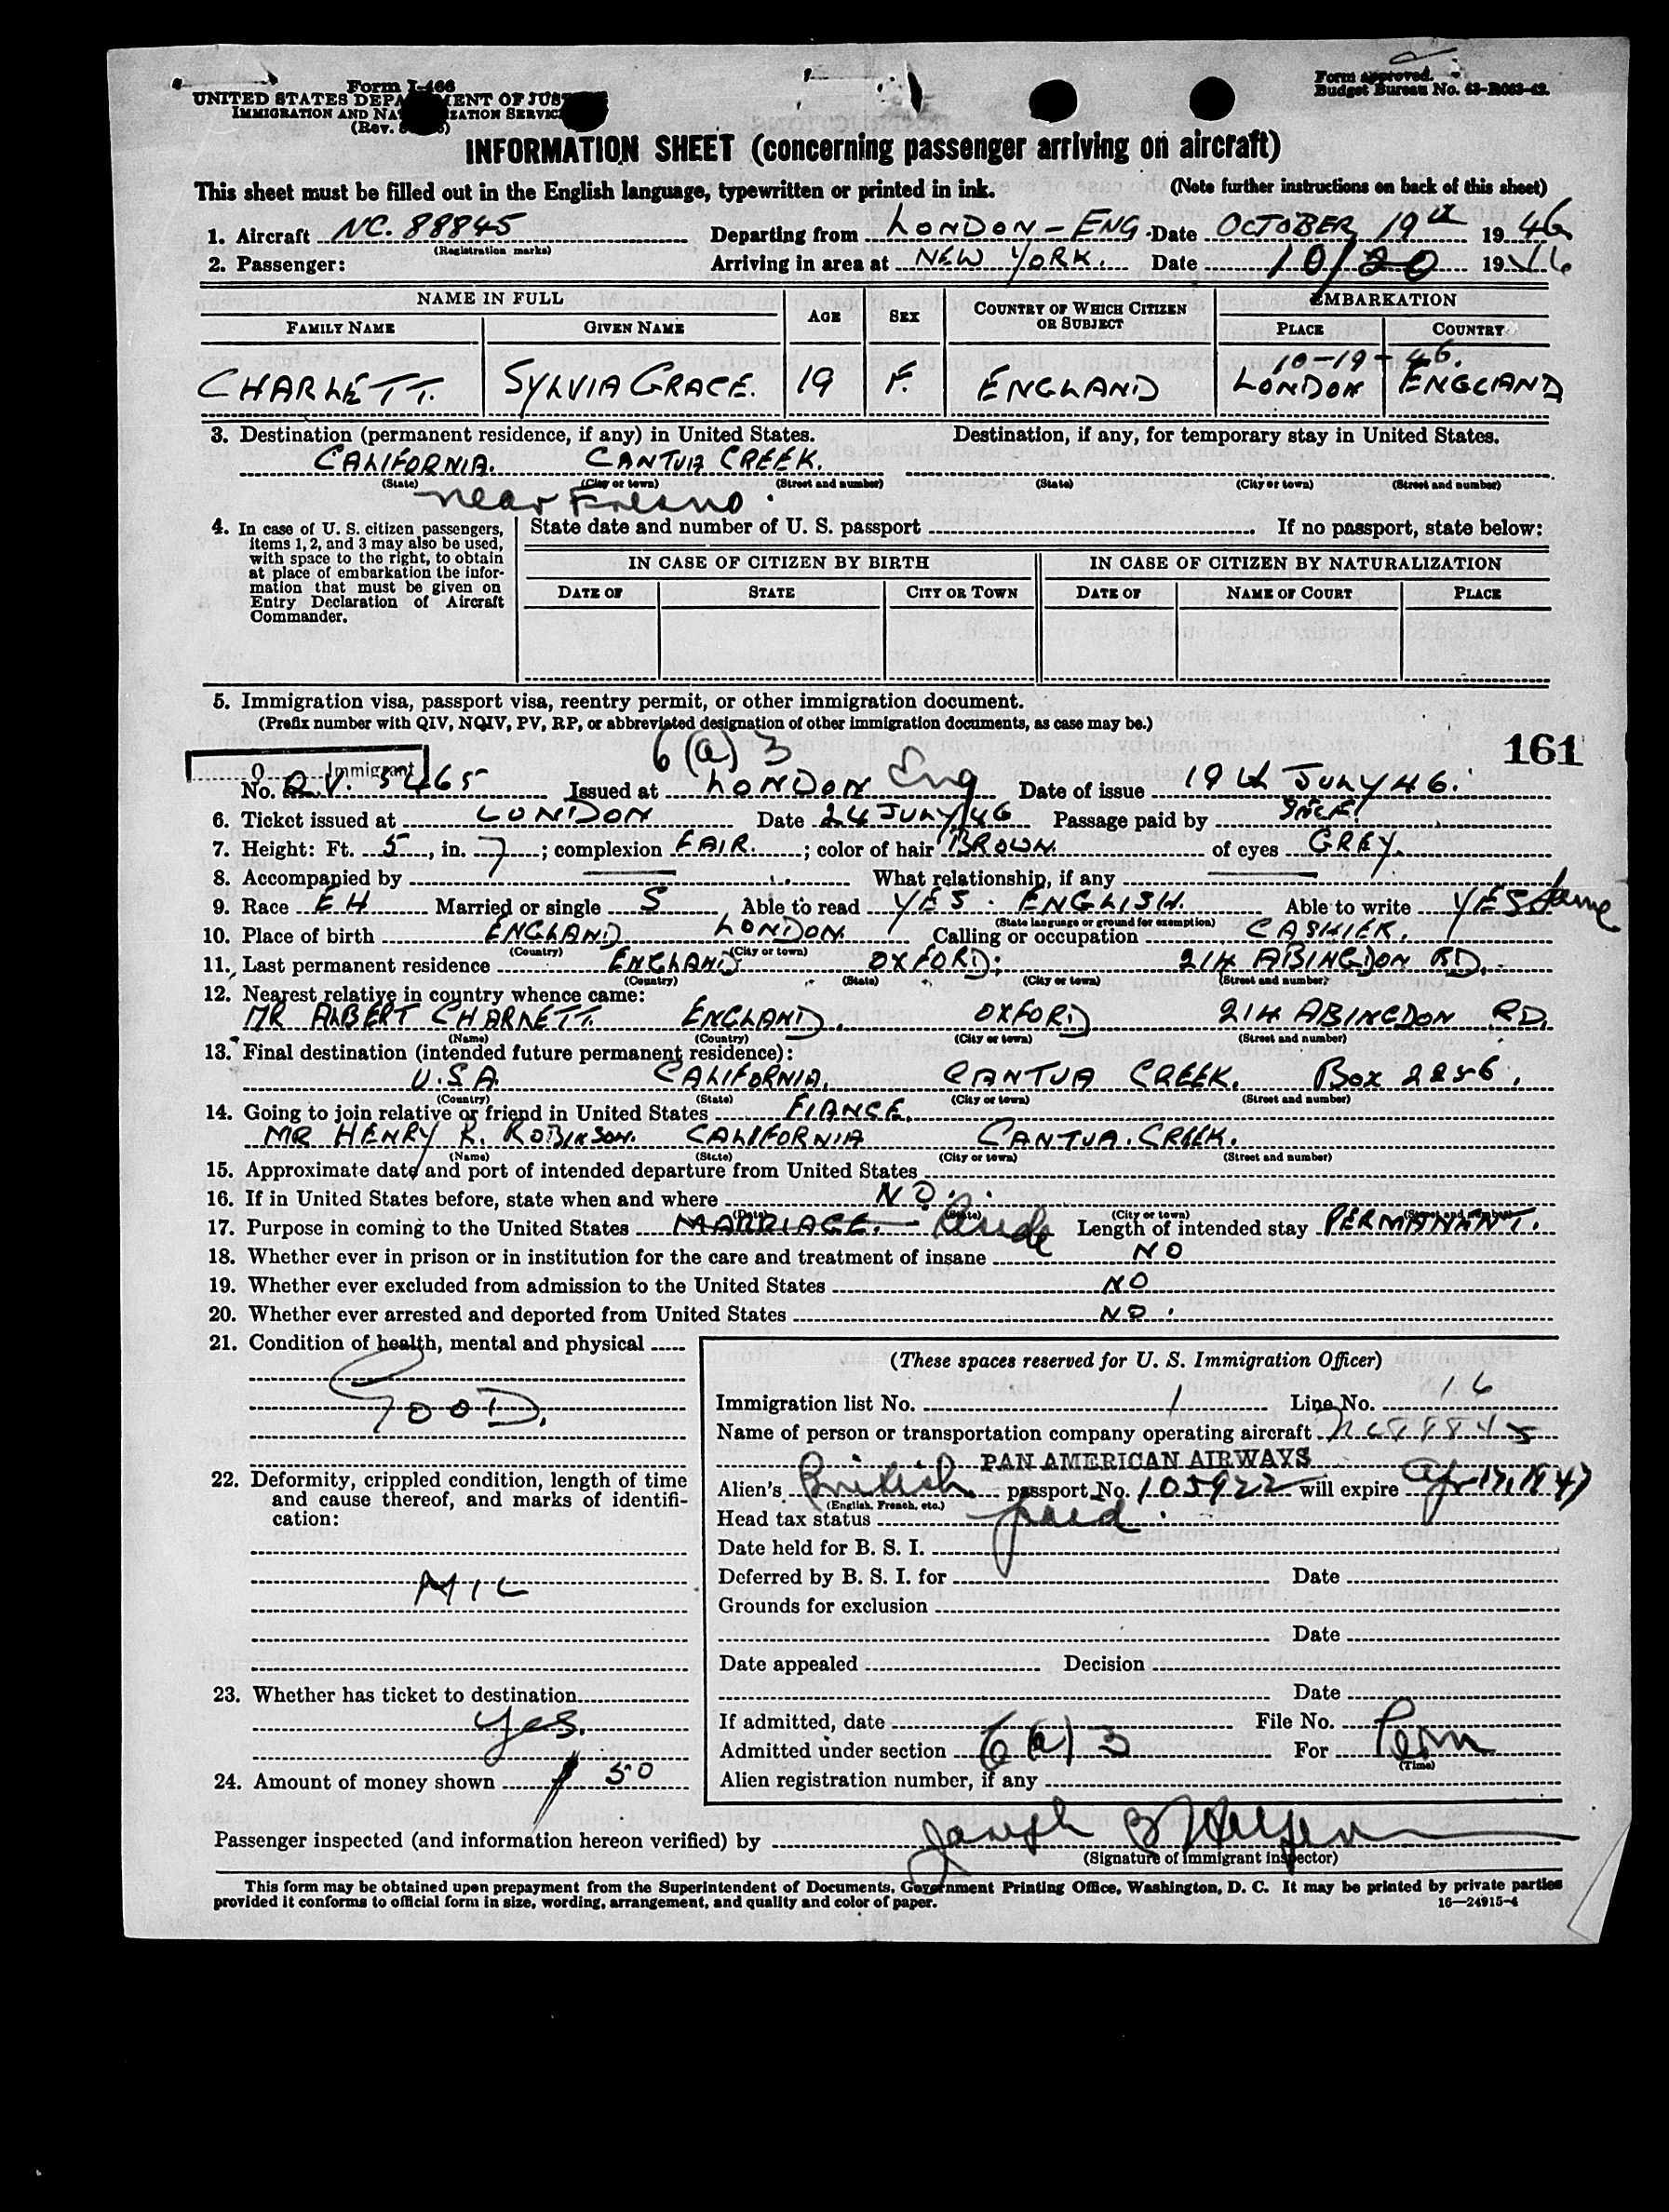 Form I-466
UNITED STATES DEPARTMENT OF JUSTICE
IMMIGRATION AND NATURALIZATION SERVICE
(Rev.
Form approved.
Budget Bureau No. 43-R063-42.
INFORMATION SHEET (concerning passenger arriving on aircraft)
This sheet must be filled out in the English language, typewritten or printed in ink. (Note further instructions on back of this sheet)
1. Aircraft NC. 88845 Departing from LONDON-ENG. Date OCTOBER 19th 1946
(Registration marks)
2. Passenger: Arriving in area at NEW YORK. Date 10/20 1946
NAME IN FULL AGE SEX COUNTRY OF WHICH CITIZEN OR SUBJECT EMBARKATION
FAMILY NAME GIVEN NAME PLACE COUNTRY
10-19-46.
CHARLETT. SYLVIA GRACE. 19 F. ENGLAND LONDON ENGLAND
3. Destination (permanent residence, if any) in United States. Destination, if any, for temporary stay in United States.
CALIFORNIA. CANTUA CREEK.
(State) (City or town) (Street and number) (State) (City or town) (Street and number)
near Fresno
4. In case of U. S. citizen passengers, items 1, 2, and 3 may also be used, with space to the right, to obtain at place of embarkation the information that must be given on Entry Declaration of Aircraft Commander.
State date and number of U. S. passport If no passport, state below:
IN CASE OF CITIZEN BY BIRTH IN CASE OF CITIZEN BY NATURALIZATION
DATE OF STATE CITY OR TOWN DATE OF NAME OF COURT PLACE
5. Immigration visa, passport visa, reentry permit, or other immigration document.
(Prefix number with QIV, NQIV, PV, RP, or abbreviated designation of other immigration documents, as case may be.)
6(a) 3 161
Q Immigrant
No. Q.V. 5465 Issued at LONDON Eng Date of issue 19th JULY 46.
6. Ticket issued at LONDON Date 24 JULY/46 Passage paid by SELF.
7. Height: Ft. 5, in. 7; complexion FAIR.; color of hair BROWN. of eyes GREY.
8. Accompanied by — What relationship, if any —
9. Race EH Married or single S Able to read YES. ENGLISH. Able to write YES Same
(State language or ground for exemption)
10. Place of birth ENGLAND LONDON. Calling or occupation CASHIER.
(Country) (City or town)
11. Last permanent residence ENGLAND OXFORD: 214 ABINGDON RD.
(Country) (State) (City or town) (Street and number)
12. Nearest relative in country whence came:
MR ALBERT CHARLETT. ENGLAND. OXFORD 214 ABINGDON RD.
(Name) (Country) (City or town) (Street and number)
13. Final destination (intended future permanent residence):
U.S.A. CALIFORNIA. CANTUA CREEK. Box 2256.
(Country) (State) (City or town) (Street and number)
14. Going to join relative or friend in United States FIANCE.
MR HENRY R. ROBINSON. CALIFORNIA CANTUA. CREEK.
(Name) (State) (City or town) (Street and number)
15. Approximate date and port of intended departure from United States
16. If in United States before, state when and where NO.
(Date) (State) (City or town) (Street and number)
17. Purpose in coming to the United States MARRIAGE. - Reside Length of intended stay PERMANANT.
18. Whether ever in prison or in institution for the care and treatment of insane NO
19. Whether ever excluded from admission to the United States NO
20. Whether ever arrested and deported from United States NO.
21. Condition of health, mental and physical
GOOD.
22. Deformity, crippled condition, length of time and cause thereof, and marks of identification:
NIL
23. Whether has ticket to destination
Yes.
24. Amount of money shown $ 50
(These spaces reserved for U. S. Immigration Officer)
Immigration list No. 1 Line No. 16
Name of person or transportation company operating aircraft NC88845
PAN AMERICAN AIRWAYS
Alien's British passport No. 105922 will expire Apr 17, 1947
(English, French, etc.)
Head tax status paid.
Date held for B. S. I.
Deferred by B. S. I. for Date
Grounds for exclusion
Date
Date appealed Decision
Date
If admitted, date File No.
Admitted under section 6(a) 3 For Perm
(Time)
Alien registration number, if any
Passenger inspected (and information hereon verified) by Joseph
(Signature of immigrant inspector)
This form may be obtained upon prepayment from the Superintendent of Documents, Government Printing Office, Washington, D. C. It may be printed by private parties
provided it conforms to official form in size, wording, arrangement, and quality and color of paper. 16—24915-4